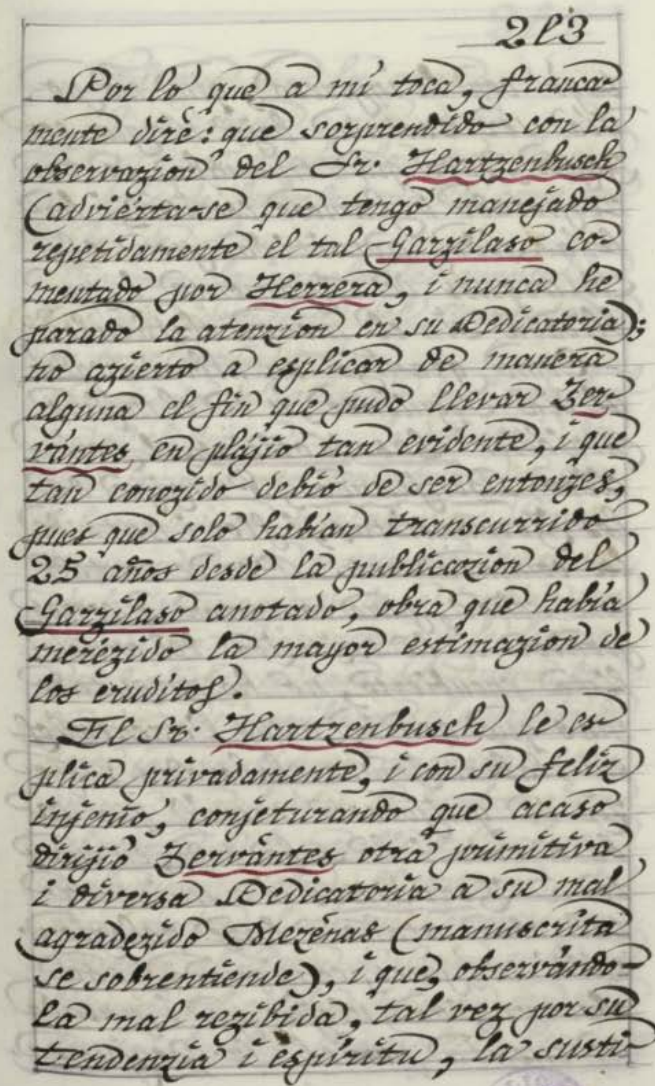 213
Por lo que a mi toca, franca-
mente diré: que sorprendido con la
observazion del Sr. Hartzenbusch
(adviértase que tengo manejado
repetidamente el tal Garzilaso co-
mentado por Herrera, i nunca he
parado la atenzion en su Dedicatoria);
no azierto a esplicar de manera
alguna el fin que pudo llevar Zer-
vántes en plájio tan evidente, i que
tan conozido debió de ser entonzes,
pues que solo habían transcurrido
25 años desde la publicazion del
Garzilaso anotado, obra que había
merezido la mayor estimazion de
los eruditos.
El Sr. Hartzenbusch le es-
plica privadamente, i con su feliz
injenio, conjeturando que acaso
dirijió Zervántes otra primitiva
i diversa Dedicatoria a su mal
agradezido Mezénas (manuscrita
se sobrentiende), i que, observándo-
la mal rezibida, tal vez por su
tendenzia i espíritu, la susti-